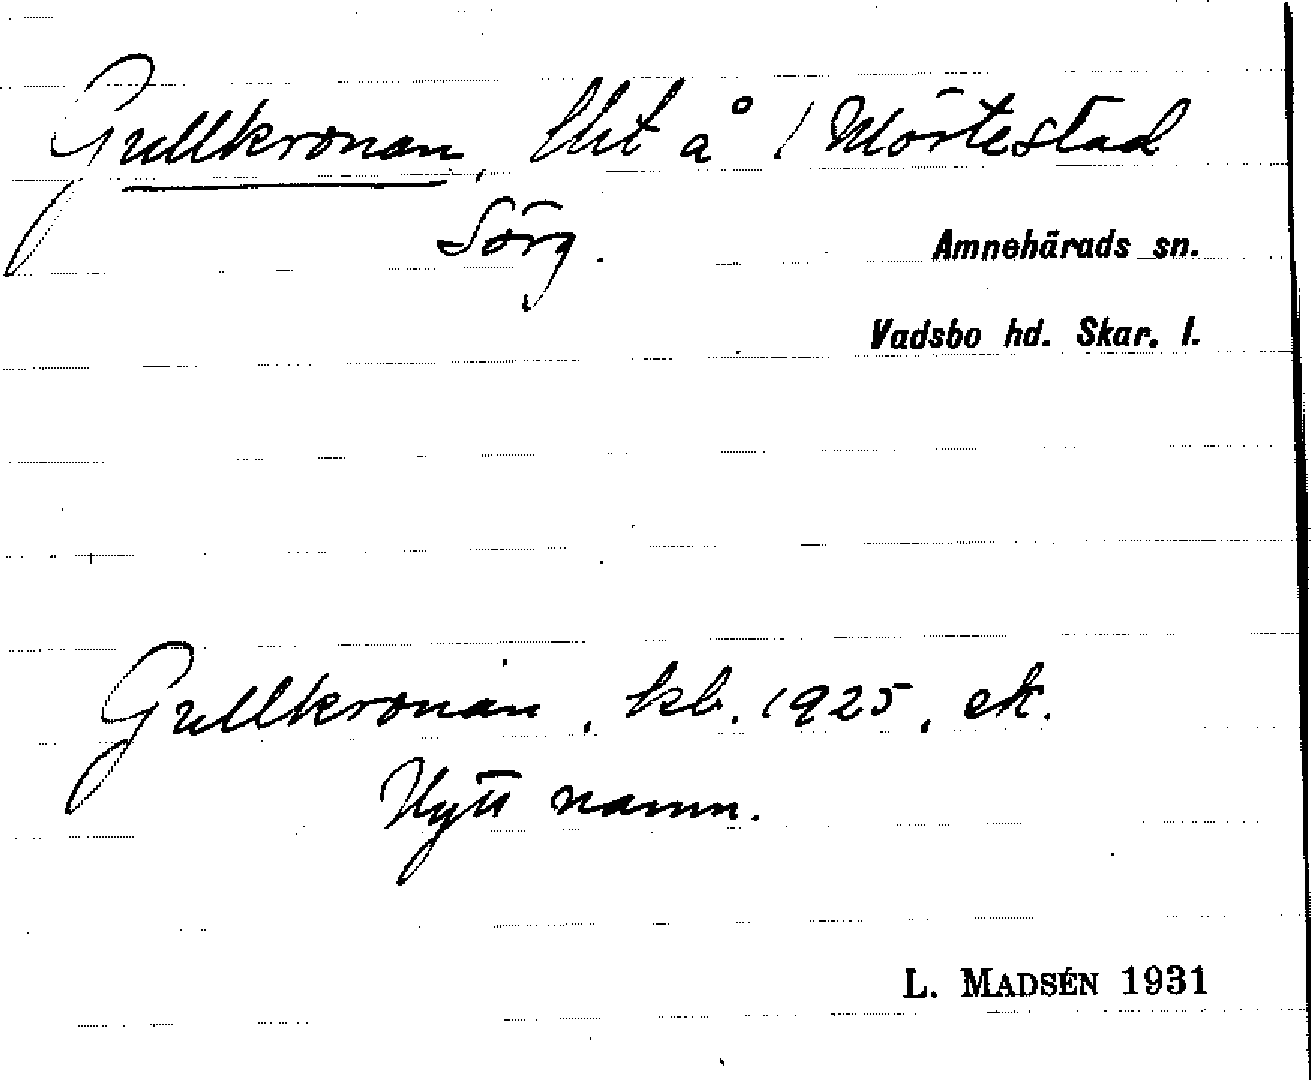 Gullkronan, lht å 1 Mörtestad
Sörg.
Amnehärads sn.
Vadsbo hd. Skar. l.
Gullkronan, kb. 1925, ek.
Nytt namn.
L. MADSÉN 1931